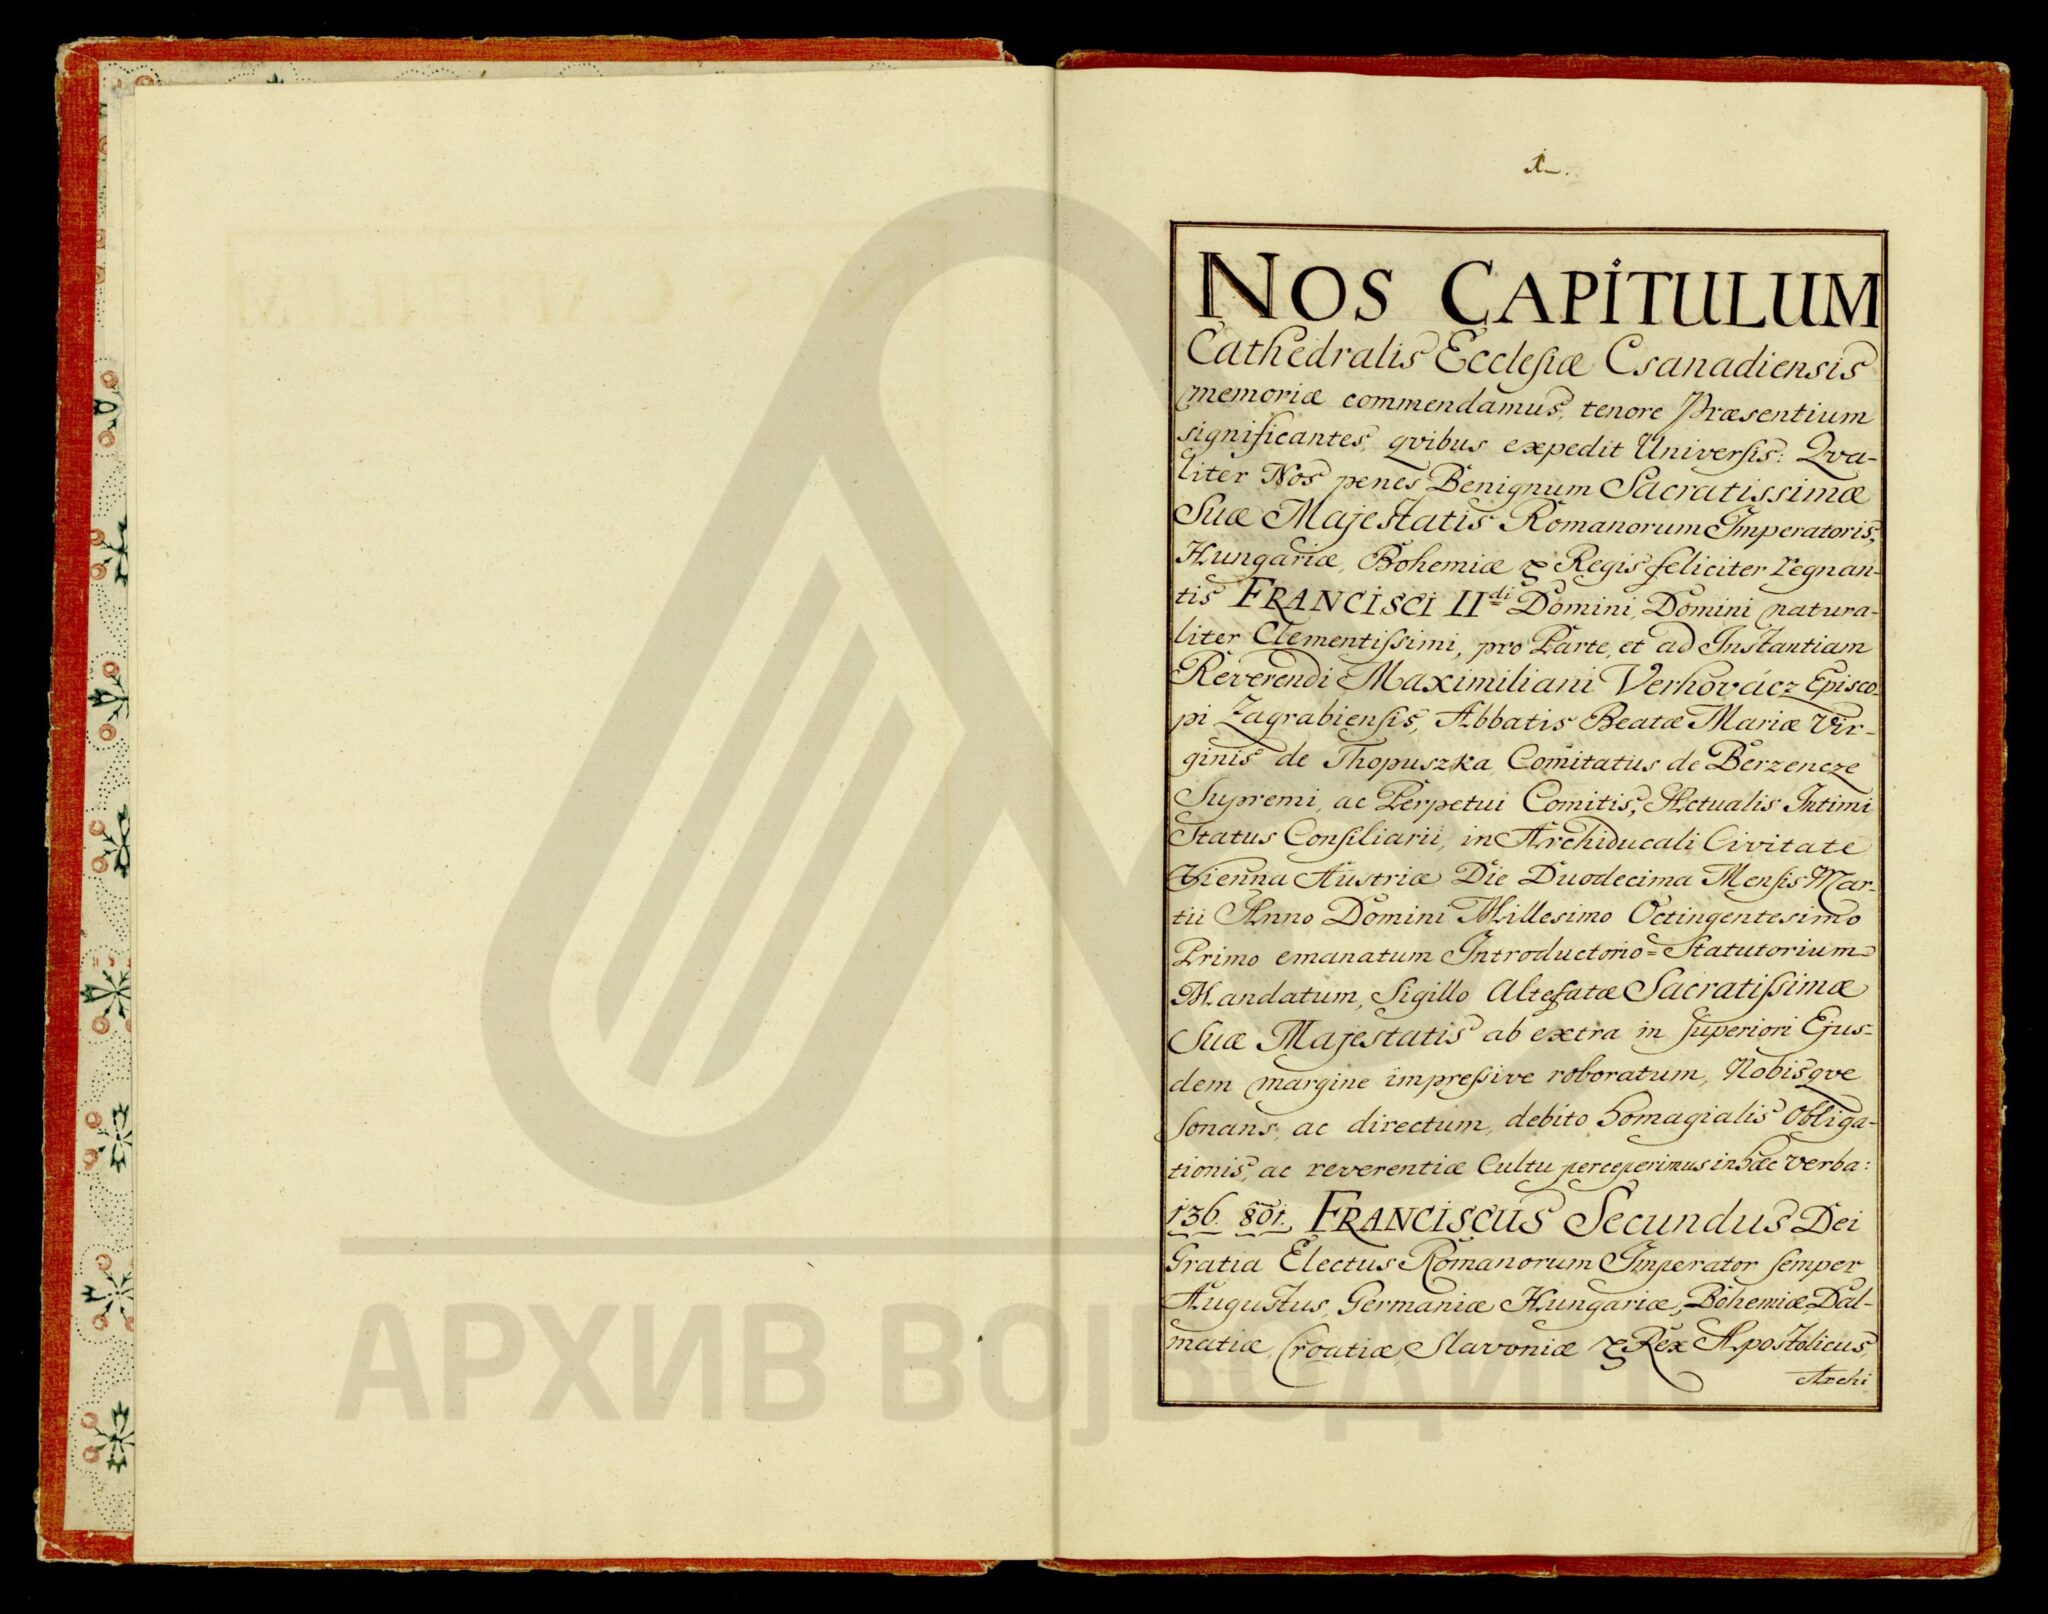 1.
NOS CAPITULUM
Cathedralis Ecclesiæ Csanadiensis
memoriæ commendamus, tenore Præsentium
significantes, qvibus expedit Universis: Qva-
liter Nos penes Benignum Sacratissimæ
Suæ Majestatis Romanorum Imperatoris,
Hungariæ, Bohemiæ & Regis feliciter regnan-
tis FRANCISCI II di Domini, Domini natura-
liter Clementissimi, pro Parte, et ad Instantiam
Reverendi Maximiliani Verhovácz Episco-
pi Zagrabiensis, Abbatis Beatæ Mariæ Vir-
ginis de Thopuszka, Comitatus de Berzencze
Supremi, ac Perpetui Comitis, Actualis Intimi
Status Consiliarii, in Archiducali Civitate
Vienna Austriæ Die Duodecima Mensis Mar-
tii Anno Domini Millesimo Octingentesimo
Primo emanatum Introductorio=Statutorium
Mandatum, Sigillo Altefatæ Sacratissimæ
Suæ Majestatis ab extra in superiori Ejus-
dem margine impressive roboratum, Nobisqve
sonans, ac directum, debito homagialis Obliga-
tionis, ac reverentiæ Cultu perceperimus in hæc verba:
136. 801. FRANCISCUS Secundus Dei
Gratia Electus Romanorum Imperator semper
Augustus, Germaniæ Hungariæ, Bohemiæ Dal-
matiæ, Croatiæ, Slavoniæ & Rex Apostolicus
Archi
АРХИВ ВОЈВОДИНЕ